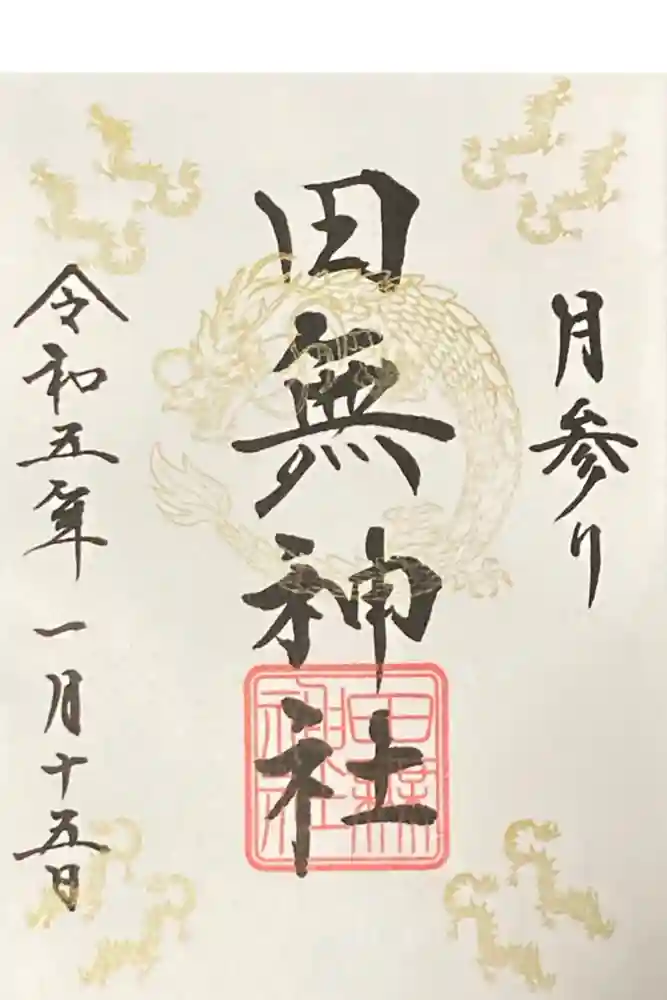 月参り
田無神社
田無神社
令和五年一月十五日